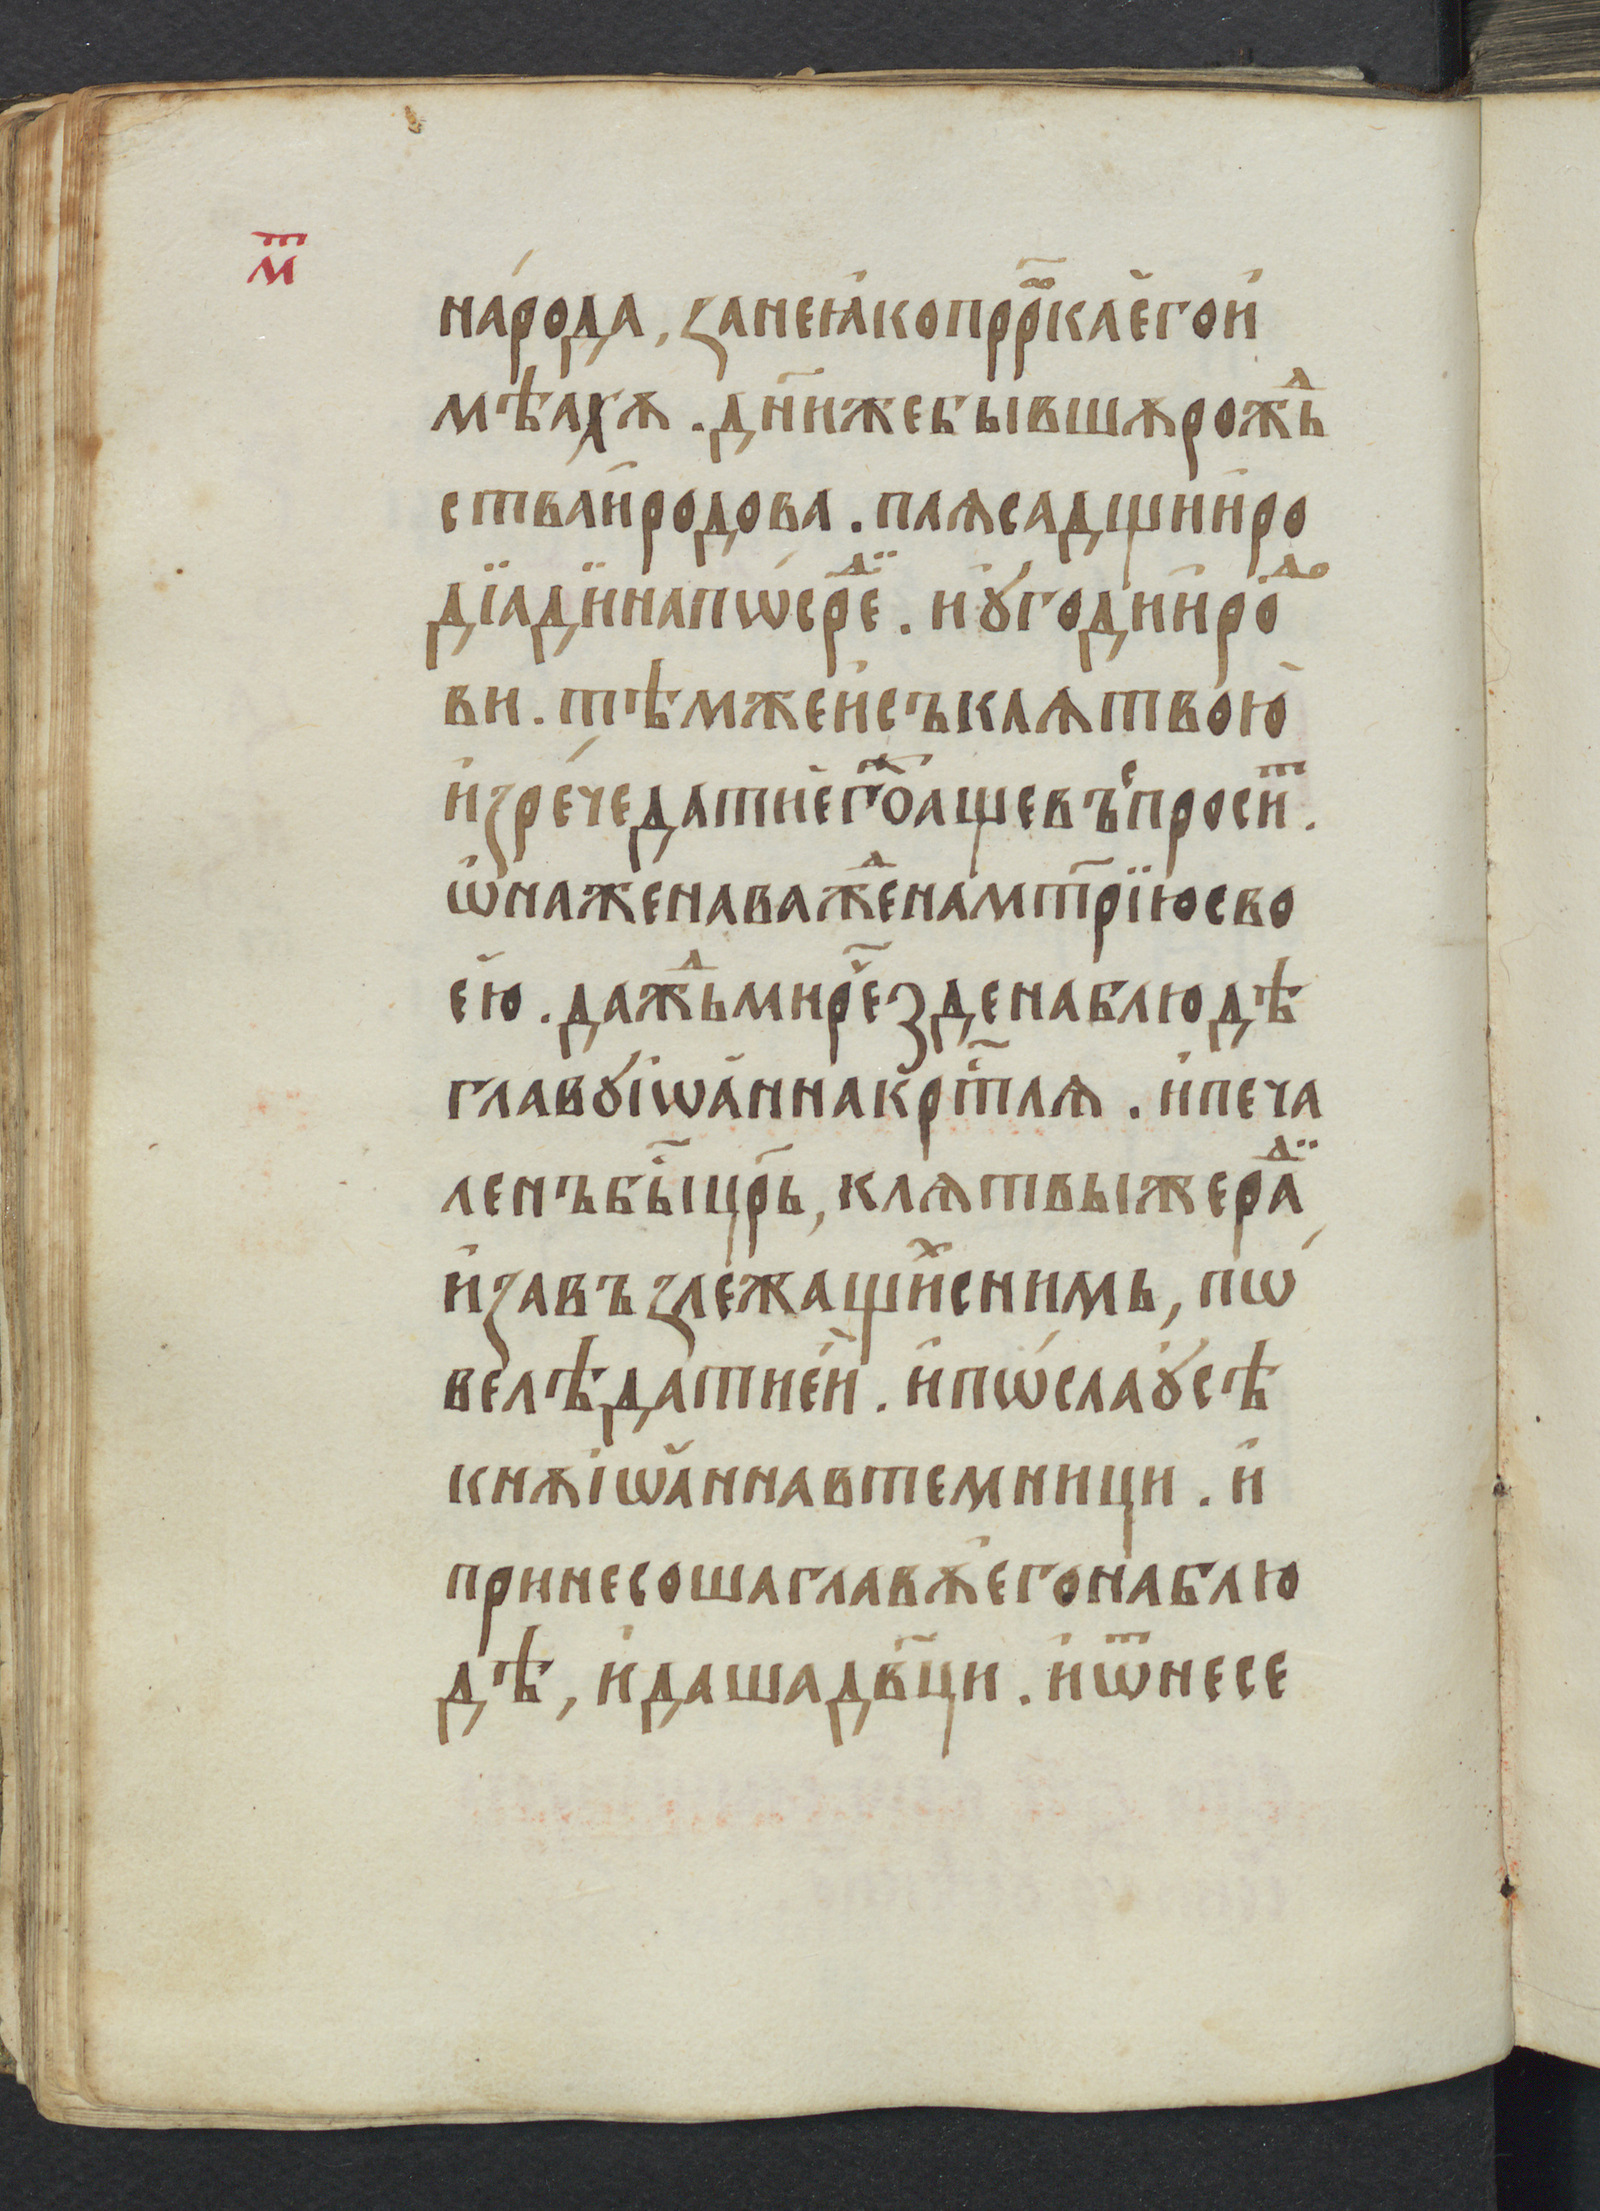 м҃т
на́рода, занеꙗ́копрⷪ҇рⷪ҇каѐгои҆
мѣахѫ. дн҃ижебывшѫрожⷣь
стваи҆родова. плѧсадщии҆ро
дїадїинапѡ́срⷣїе. иꙋ҆годии҆роⷣо
ви. тѣмжеи҆съклѧтвою
и҆зре́чедатиѐгⷤоащевъсⷭпроситⷮ.
ѡ҆наженаваждⷣенамт҃рїюсво
е́ю. дажⷣьмире҃зденаблюдѣ
главꙋіѡа҆ннакрⷭ҇тлѧ. и҆печа
ленъбы҃црь҃, клѧтвыжераⷣи
и҆завъзлежащиⷯснимь, пѡ
велѣдатиеи҆. и҆пѡслаꙋ҆сѣ
кнѫіѡа҆ннавтемници. и҆
принесошаглавѫе҆гонаблю
дѣ, и҆дашадв҃ци. и҆ѿнесе